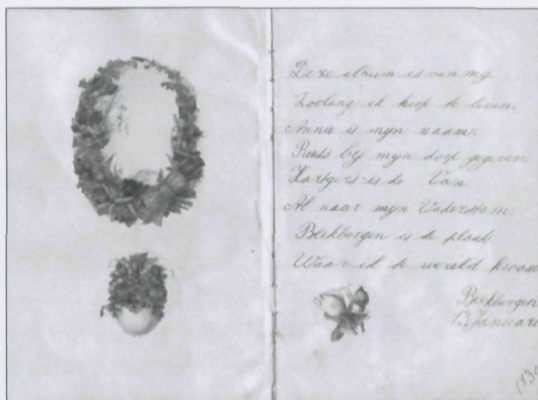 Deze album is van mij
Zoolang ik hoop te leven.
Annie is mijn naam.
Reeds bij mijn doop gegeven
Hartgers is de Van
Al naar mijn Vaderstam.
Beekbergen is de plaats
Waar ik te wereld kwam
Beekbergen
13 Januari